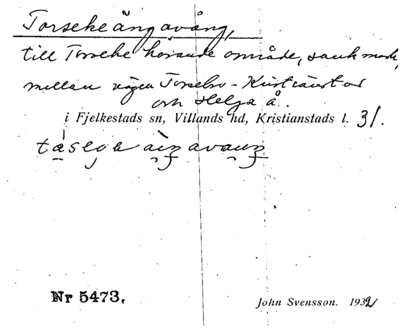 Torseke ängavång,
till Torseke hörande område, sank mark,
mellan vägen Torsebro - Kristianstad
och Helga å.
i Fjelkestads sn, Villands hd, Kristianstads l. 31.
Nr 5473.
John Svensson. 1932